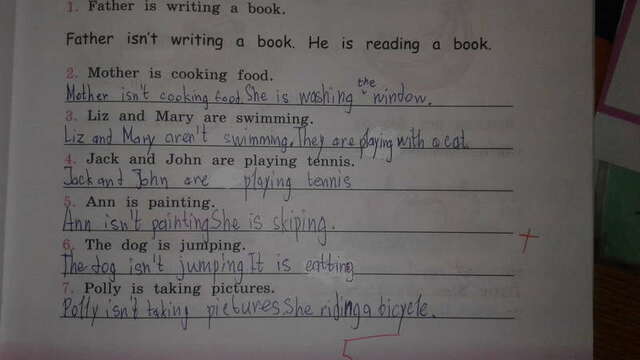 1. Father is writing a book.
Father isn't writing a book. He is reading a book.
2. Mother is cooking food.
Mother isn't cooking food. She is washing the window.
3. Liz and Mary are swimming.
Liz and Mary aren't swimming. They are playing with a cat.
4. Jack and John are playing tennis.
Jack and John are playing tennis
5. Ann is painting.
Ann isn't painting She is skiping.
6. The dog is jumping.
The dog isn't jumping It is eatting
7. Polly is taking pictures.
Polly isn't taking pictures. She riding a bicycle.